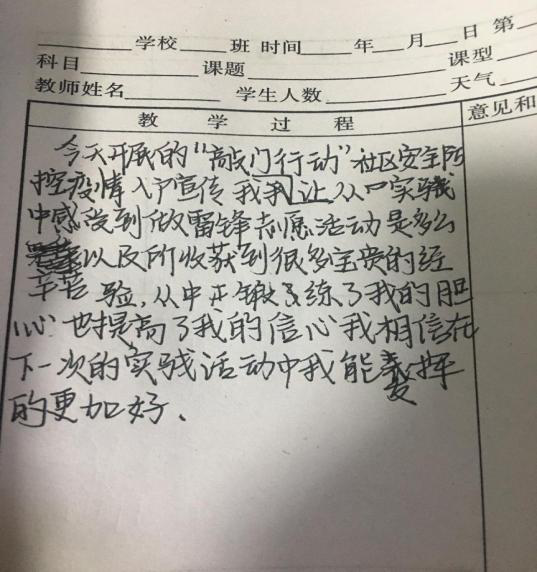 学校 班 时间 年 月 日 第
科目 课题 课型
教师姓名 学生人数 天气
教 学 过 程 意见和
今天开展的“敲门行动”社区安全防
控疫情入户宣传 我 让 从 实践
中感受到做雷锋志愿活动是多么
辛苦
以及所收获到很多宝贵的经
验,从中正锻练了我的胆
心 也提高了我的信心我相信在
下一次的实践活动中我能发挥
的更加好、